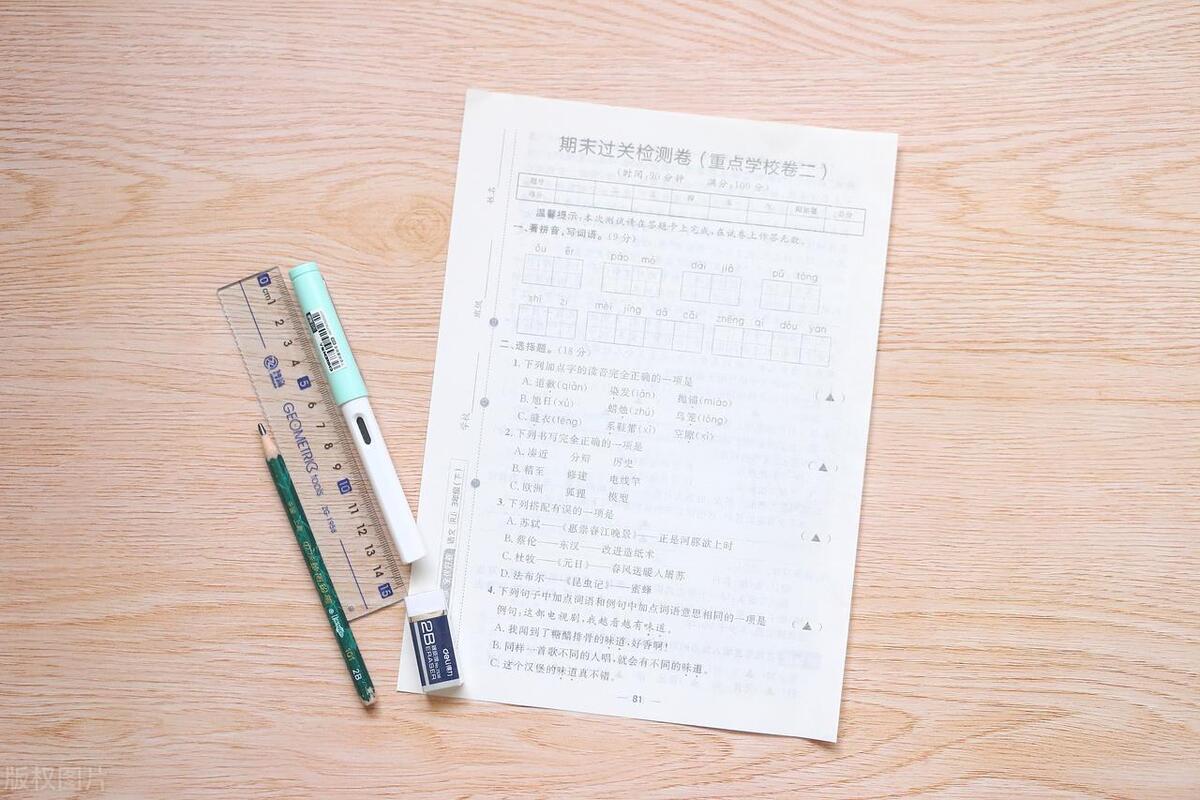 期末过关检测卷(重点学校卷二)
(时间:90分钟 满分:100分)
题号 一 二 三 四 五 六 阅读题 总分
得分
温馨提示:本次测试请在答题卡上完成,在试卷上作答无效。
一、看拼音,写词语。(9分)
ōu ěr pào mò dài jià pǔ tōng
shī zi mèi jīng dǎ cǎi zhēng qì dòu yàn
二、选择题。(18分)
1.下列加点字的读音完全正确的一项是 ( ▲ )
A.道歉(qiàn) 染发(iàn) 抛锚(miáo)
B.旭日(xù) 蜡烛(zhú) 鸟笼(lóng)
C.缝衣(féng) 系鞋带(xì) 空隙(xì)
2.下列书写完全正确的一项是 ( ▲ )
A.凑近 分辩 历史
B.精至 修建 电线竿
C.欧洲 狐理 模型
3.下列搭配有误的一项是 ( ▲ )
A.苏轼——《惠崇春江晚景》——正是河豚欲上时
B.蔡伦——东汉——改进造纸术
C.杜牧——《元日》——春风送暖入屠苏
D.法布尔——《昆虫记》——蜜蜂
4.下列句子中加点词语和例句中加点词语意思相同的一项是 ( ▲ )
例句:这部电视剧,我越看越有味道。
A.我闻到了糖醋排骨的味道,好香啊!
B.同样一首歌不同的人唱,就会有不同的味道。
C.这个汉堡的味道真不错。
— 81 —
姓名
班级
学校
语文 RJ 3年级(下)
0 cm 1 2 3 4 5 6 7 8 9 10 11 12 13 14 15
GEOMETRIC tools
ZG-1956
101 2B
2B
ERASER
deli得力
版权图片